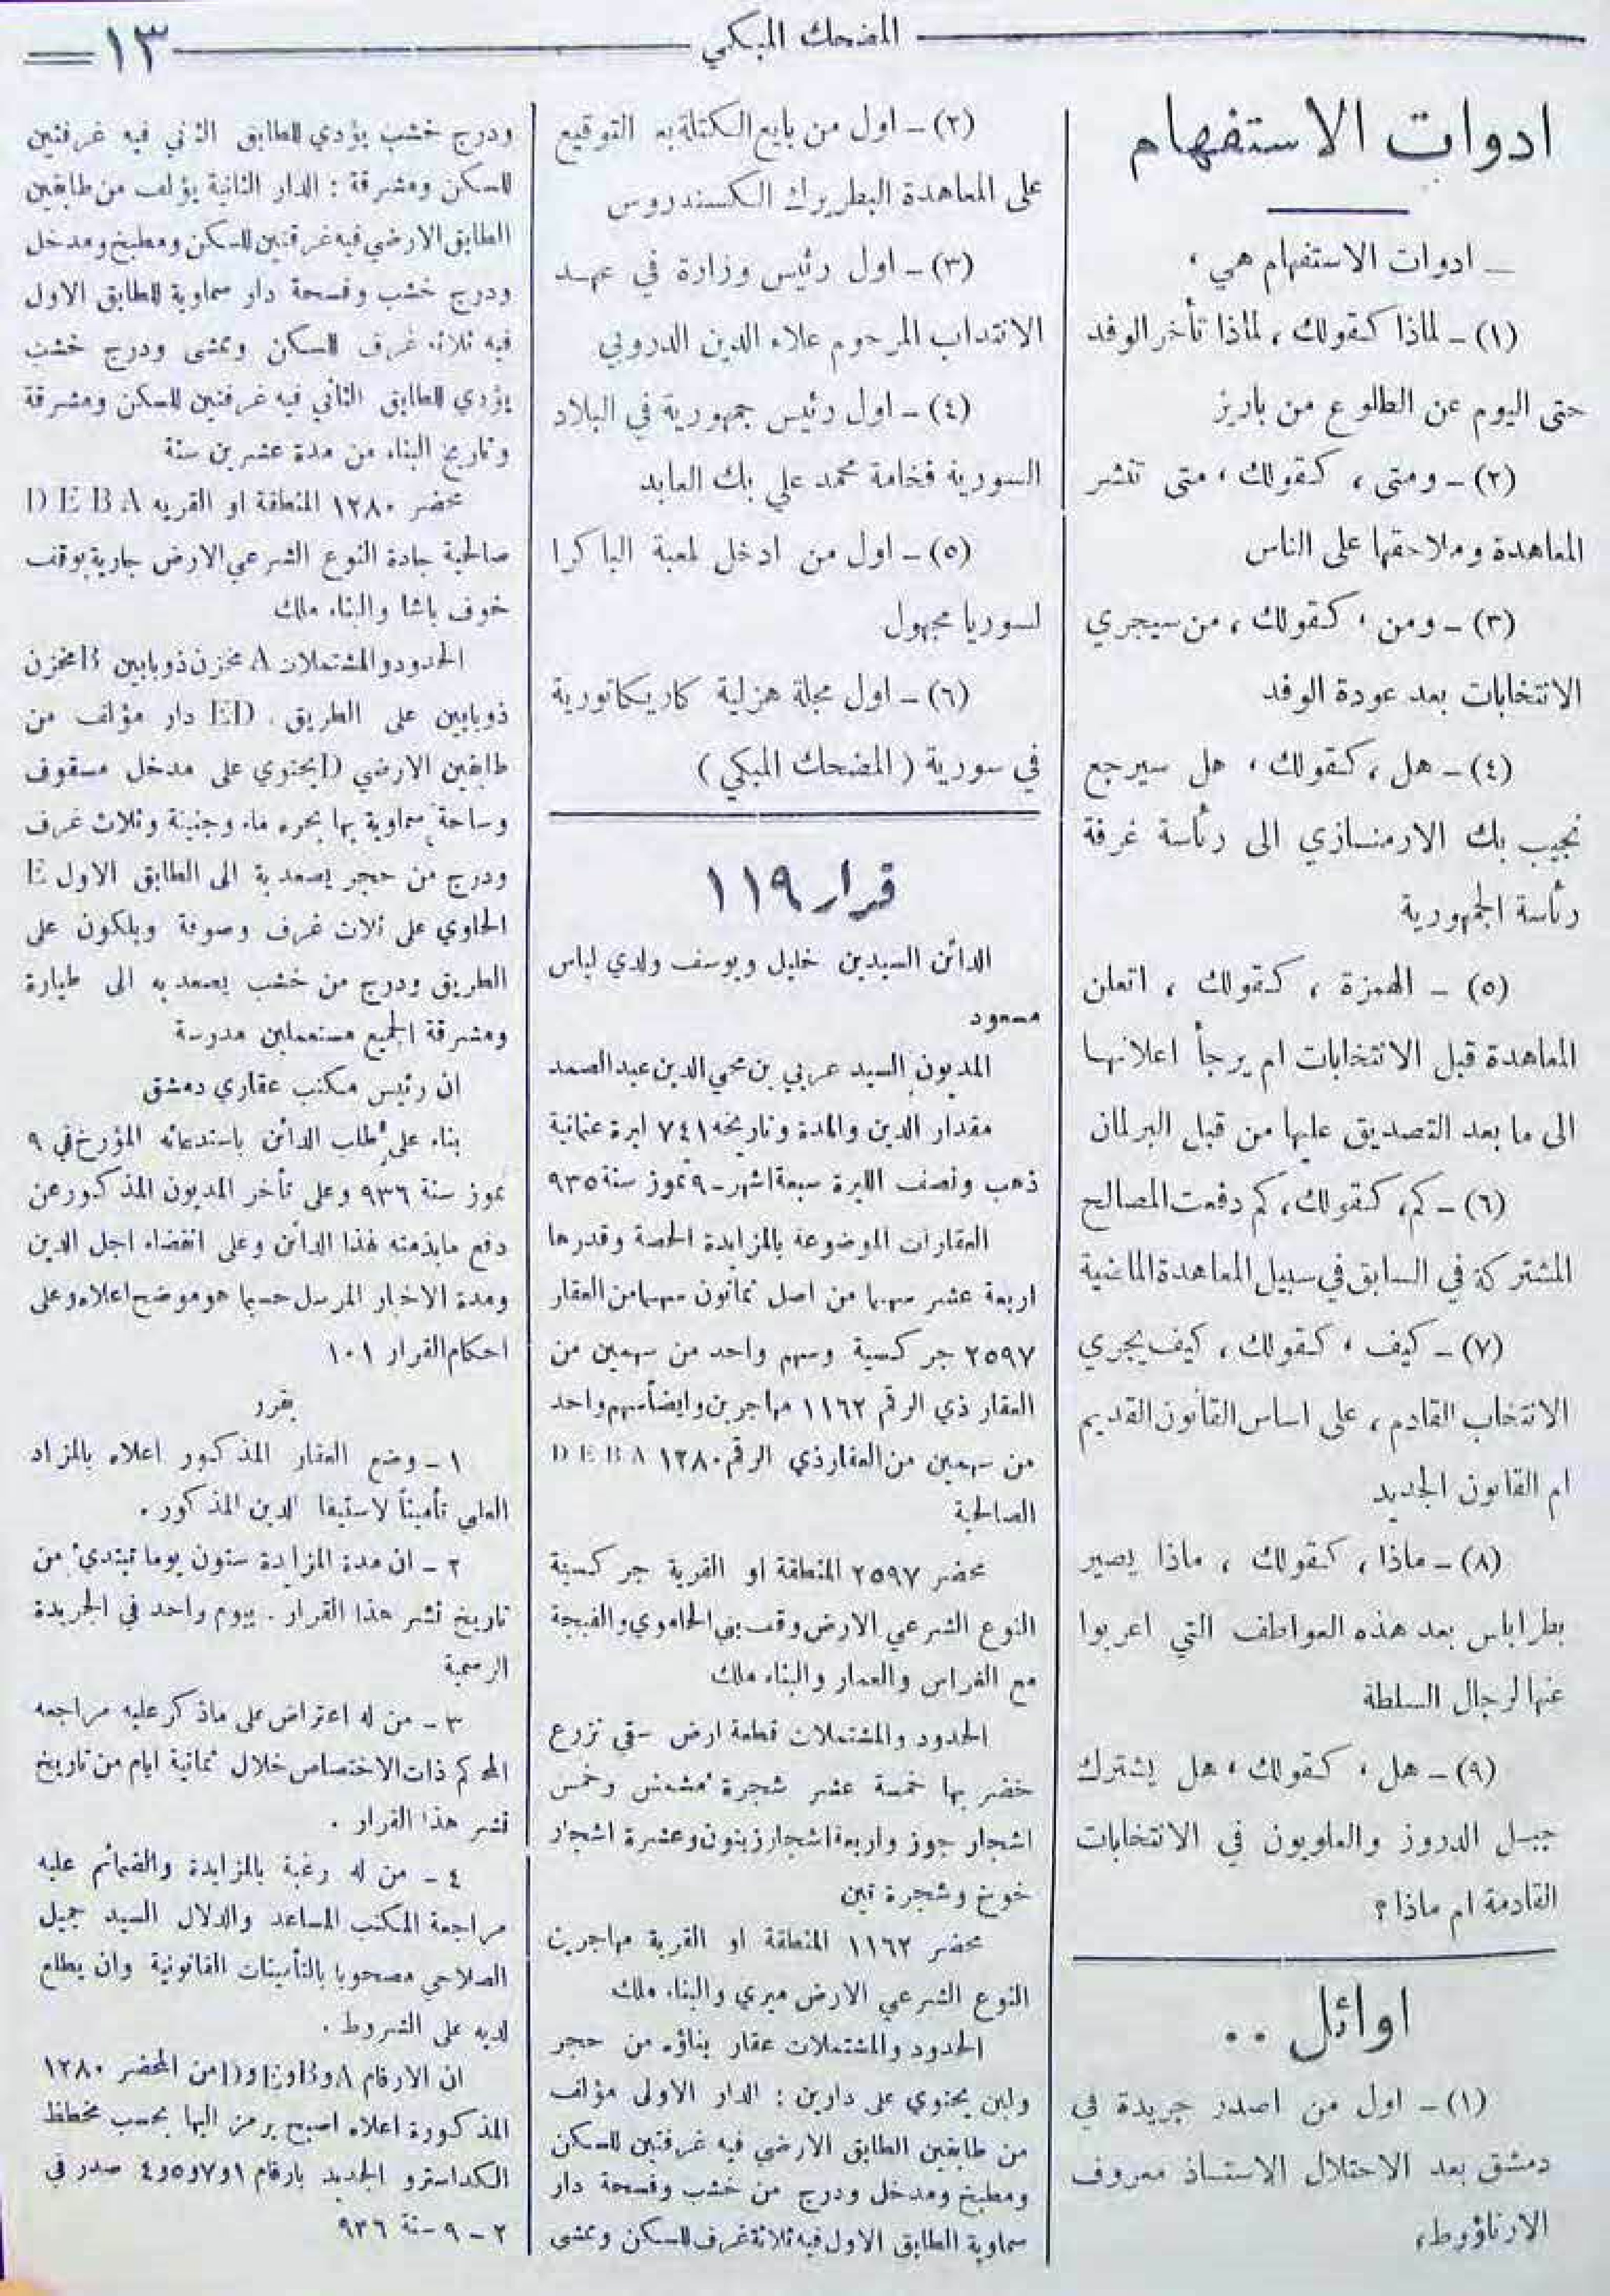 المضحك المبكي
١٣
ادوات الاستفهام
ــ ادوات الاستفهام هي ،
(١) ــ لماذا كقولك ، لماذا تأخر الوفد
حتى اليوم عن الطلوع من باريز
(٢) ــ ومتى ، كقولك ، متى تنشر
المعاهدة وملاحقها على الناس
(٣) ــ ومن ، كقولك ، من سيجري
الانتخابات بعد عودة الوفد
(٤) ــ هل ، كقولك ، هل سيرجع
نجيب بك الارمنازي الى رئاسة غرفة
رئاسة الجمهورية
(٥) ــ الهمزة ، كقولك ، اتعلن
المعاهدة قبل الانتخابات ام يرجأ اعلانها
الى ما بعد التصديق عليها من قبل البرلمان
(٦) ــ كم ، كقولك ، كم دفعت المصالح
المشتركة في السابق في سبيل المعاهدة الماضية
(٧) ــ كيف ، كقولك ، كيف يجري
الانتخاب القادم ، على اساس القانون القديم
ام القانون الجديد
(٨) ــ ماذا ، كقولك ، ماذا يصير
بطرابلس بعد هذه العواطف التي اعربوا
عنها لرجال السلطة
(٩) ــ هل ، كقولك ، هل يشترك
جبل الدروز والعلويون في الانتخابات
القادمة ام ماذا ؟
اوائل ..
(١) ــ اول من اصدر جريدة في
دمشق بعد الاحتلال الاستاذ معروف
الارناؤوط ،
(٢) ــ اول من بايع الكتلة بعد التوقيع
على المعاهدة البطريرك الكسندروس
(٣) ــ اول رئيس وزارة في عهد
الانتداب المرحوم علاء الدين الدروبي
(٤) ــ اول رئيس جمهورية في البلاد
السورية فخامة محمد علي بك العابد
(٥) ــ اول من ادخل لعبة الباكرا
لسوريا مجهول
(٦) ــ اول مجلة هزلية كاريكاتورية
في سورية ( المضحك المبكي )
قرار ١١٩
الدائن السيدين خليل ويوسف ولدي لياس
مسعود
المديون السيد عربي بن محي الدين عبد الصمد
مقدار الدين والمدة وتاريخه ٧٤١ ليرة عثمانية
ذهب ونصف الليرة سبعة اشهر ــ ٩ تموز سنة ٩٣٥
العقارات الموضوعة بالمزايدة الحصة وقدرها
اربعة عشر سهما من اصل ثمانون سهما من العقار
٢٥٩٧ جركسية وسهم واحد من سهمين من
العقار ذي الرقم ١١٦٢ مهاجرين وايضاً سهم واحد
من سهمين من العقار ذي الرقم ١٢٨٠ D E B A
الصالحية
محضر ٢٥٩٧ المنطقة او القرية جركسية
النوع الشرعي الارض وقف بني الحاموي والفيجة
مع الغراس والعمار والبناء ملك
الحدود والمشتملات قطعة ارض سقي تزرع
خضر بها خمسة عشر شجرة مشمش وخمس
اشجار جوز واربعة اشجار زيتون وعشرة اشجار
خوخ وشجرة تين
محضر ١١٦٢ المنطقة او القرية مهاجرين
النوع الشرعي الارض ميري والبناء ملك
الحدود والمشتملات عقار بناؤه من حجر
ولبن يحتوي على دارين : الدار الاولى مؤلف
من طابقين الطابق الارضي فيه غرفتين للسكن
ومطبخ ومدخل ودرج من خشب وفسحة دار
سماوية الطابق الاول فيه ثلاثة غرف للسكن وممشى
ودرج خشب يؤدي للطابق الثاني فيه غرفتين
للسكن ومشرقة : الدار الثانية يؤلف من طابقين
الطابق الارضي فيه غرفتين للسكن ومطبخ ومدخل
ودرج خشب وفسحة دار سماوية للطابق الاول
فيه ثلاثة غرف للسكن وممشى ودرج خشب
يؤدي للطابق الثاني فيه غرفتين للسكن ومشرقة
وتاريخ البناء من مدة عشرين سنة
محضر ١٢٨٠ المنطقة او القريه D E B A
صالحية جادة النوع الشرعي الارض جارية بوقف
خوف باشا والبناء ملك
الحدود والمشتملات A مخزن ذو بابين B مخزن
ذو بابين على الطريق . ED دار مؤلف من
طابقين الارضي D يحتوي على مدخل مسقوف
وساحة سماوية بها بحره ماء وجنينة وثلاث غرف
ودرج من حجر يصعد به الى الطابق الاول E
الحاوي على ثلاث غرف وصوفة وبلكون على
الطريق ودرج من خشب يصعد به الى طيارة
ومشرقة الجميع مستعملين مدرسة
ان رئيس مكتب عقاري دمشق
بناء على طلب الدائن باستدعائه المؤرخ في ٩
تموز سنة ٩٣٦ وعلى تأخر المديون المذكور عن
دفع ما بذمته لهذا الدائن وعلى انقضاء اجل الدين
ومدة الاخبار المرسل حسبما هو موضح اعلاه وعلى
احكام القرار ١٠١
يقرر
١ ــ وضع العقار المذكور اعلاه بالمزاد
العلني تأميناً لاستيفا الدين المذكور .
٢ ــ ان مدة المزايدة ستون يوما تبتدىء من
تاريخ نشر هذا القرار . بيوم واحد في الجريدة
الرسمية
٣ ــ من له اعتراض على ماذكر عليه مراجعه
المحاكم ذات الاختصاص خلال ثمانية ايام من تاريخ
نشر هذا القرار .
٤ ــ من له رغبة بالمزايدة والضمائم عليه
مراجعة المكتب المساعد والدلال السيد جميل
الصلاحي مصحوبا بالتأمينات القانونية وان يطلع
لديه على الشروط .
ان الارقام A وB وE وD من المحضر ١٢٨٠
المذكورة اعلاه اصبح يرمز اليها بحسب مخطط
الكداسترو الجديد بارقام ١ و٧ و٥ و٤ صدر في
٢ ــ ٩ ــ سنة ٩٣٦